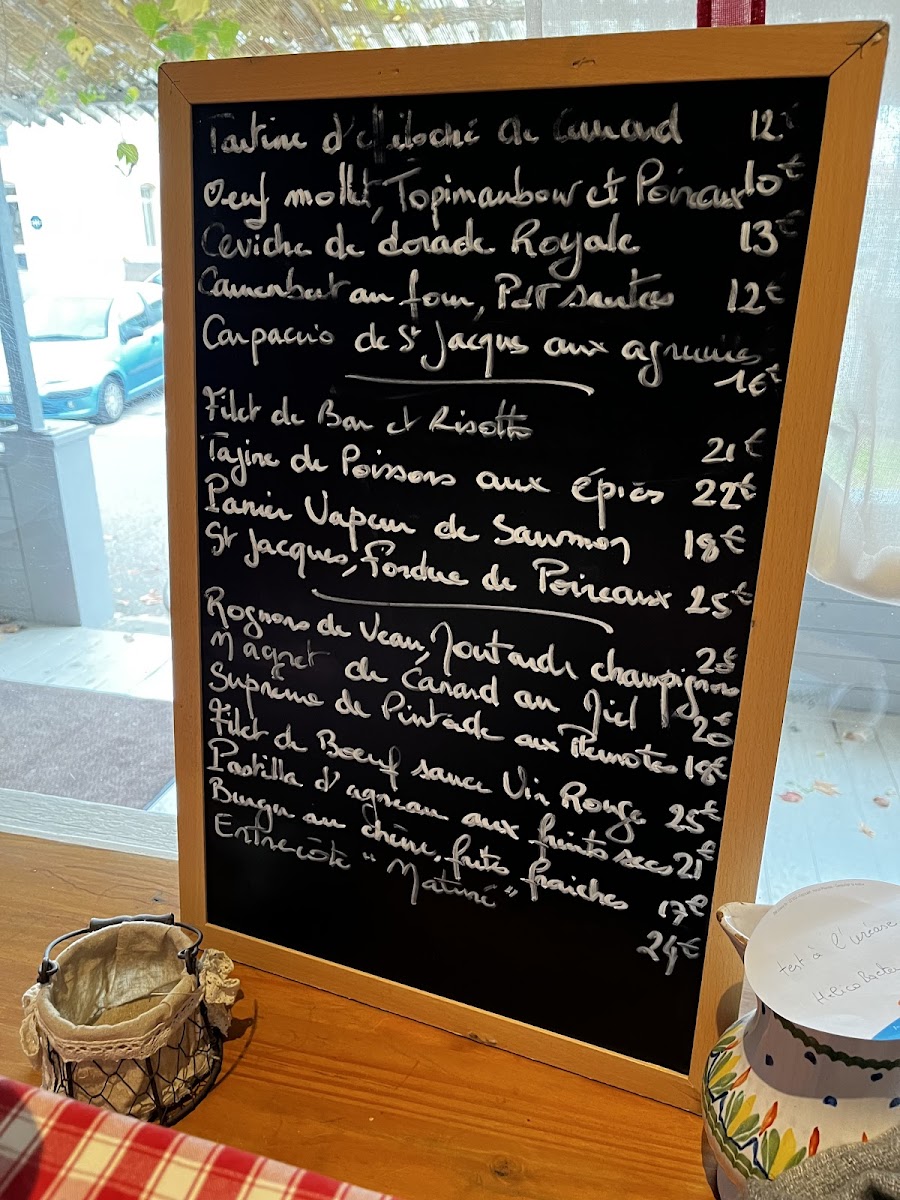 Tartine d'effiloché de Canard 12€
Oeuf mollet, Topinambour et Poireaux 10€
Ceviche de dorade Royale 13€
Camembert au four, PdT sautées 12€
Carpaccio de St Jacques aux agrumes
16€
Filet de Bar et Risotto 21€
Tajine de Poissons aux épices 22€
Panier Vapeur de Saumon 18€
St Jacques, fondue de Poireaux 25€
Rognons de Veau, Moutarde champignons 23€
Magret de Canard au Miel 20€
Suprême de Pintade aux 18€
Filet de Boeuf sauce Vin Rouge 25€
Pastilla d'agneau aux fruits secs 21€
Burger au chèvre, frites fraiches 17€
Entrecôte "Maturé" 24€
test à l'uréase
Helico Bacter